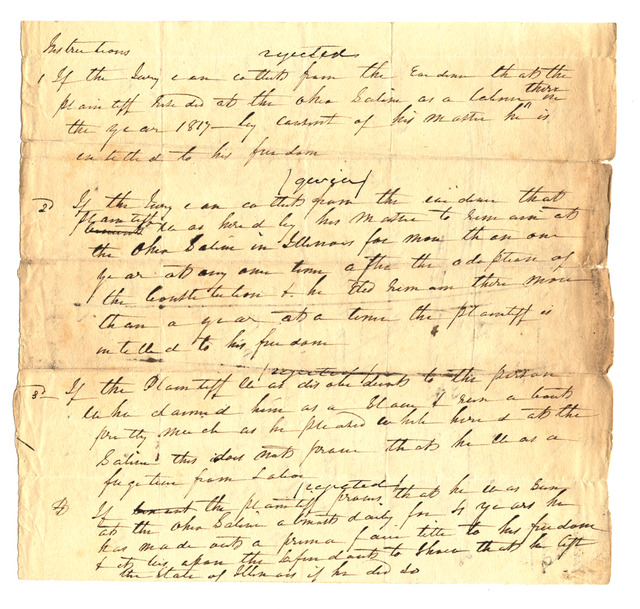 Instructions rejected
1 If the Jury can collect from the Evidence that the
plaintiff resided at the Ohio Saline as a laborer there in
the year 1817 — by consent of his master he is
intitled to his freedom
(given)
2d If the Jury can collect from the evidence that
plaintiff was hired by his master to remain at
the Ohio Saline in Illinois for more than one
year at any one time after the adoption of
the Constitution & he did remain there more
than a year at a time the plaintiff is
intitled to his freedom
(rejected)
3d If the Plaintiff was disobedient to the person
who claimed him as a Slave & run about
pretty much as he pleased while hired at the
Saline this does not prove that he was a
fugitive from Labor
(rejected)
4 If the plaintiff proves that he was seen
at the Ohio Saline almost daily for 4 years he
has made out a prima facie title to his freedom
& it lies upon the defendant to Show that he left
the State of Illinois if he did so